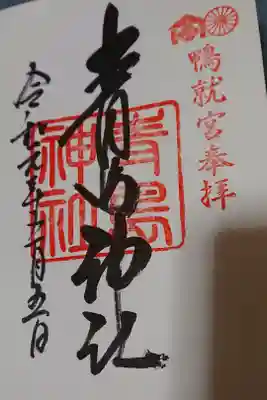 鴨就宮奉拝
青島神社
青島神社
令和六年 月五日